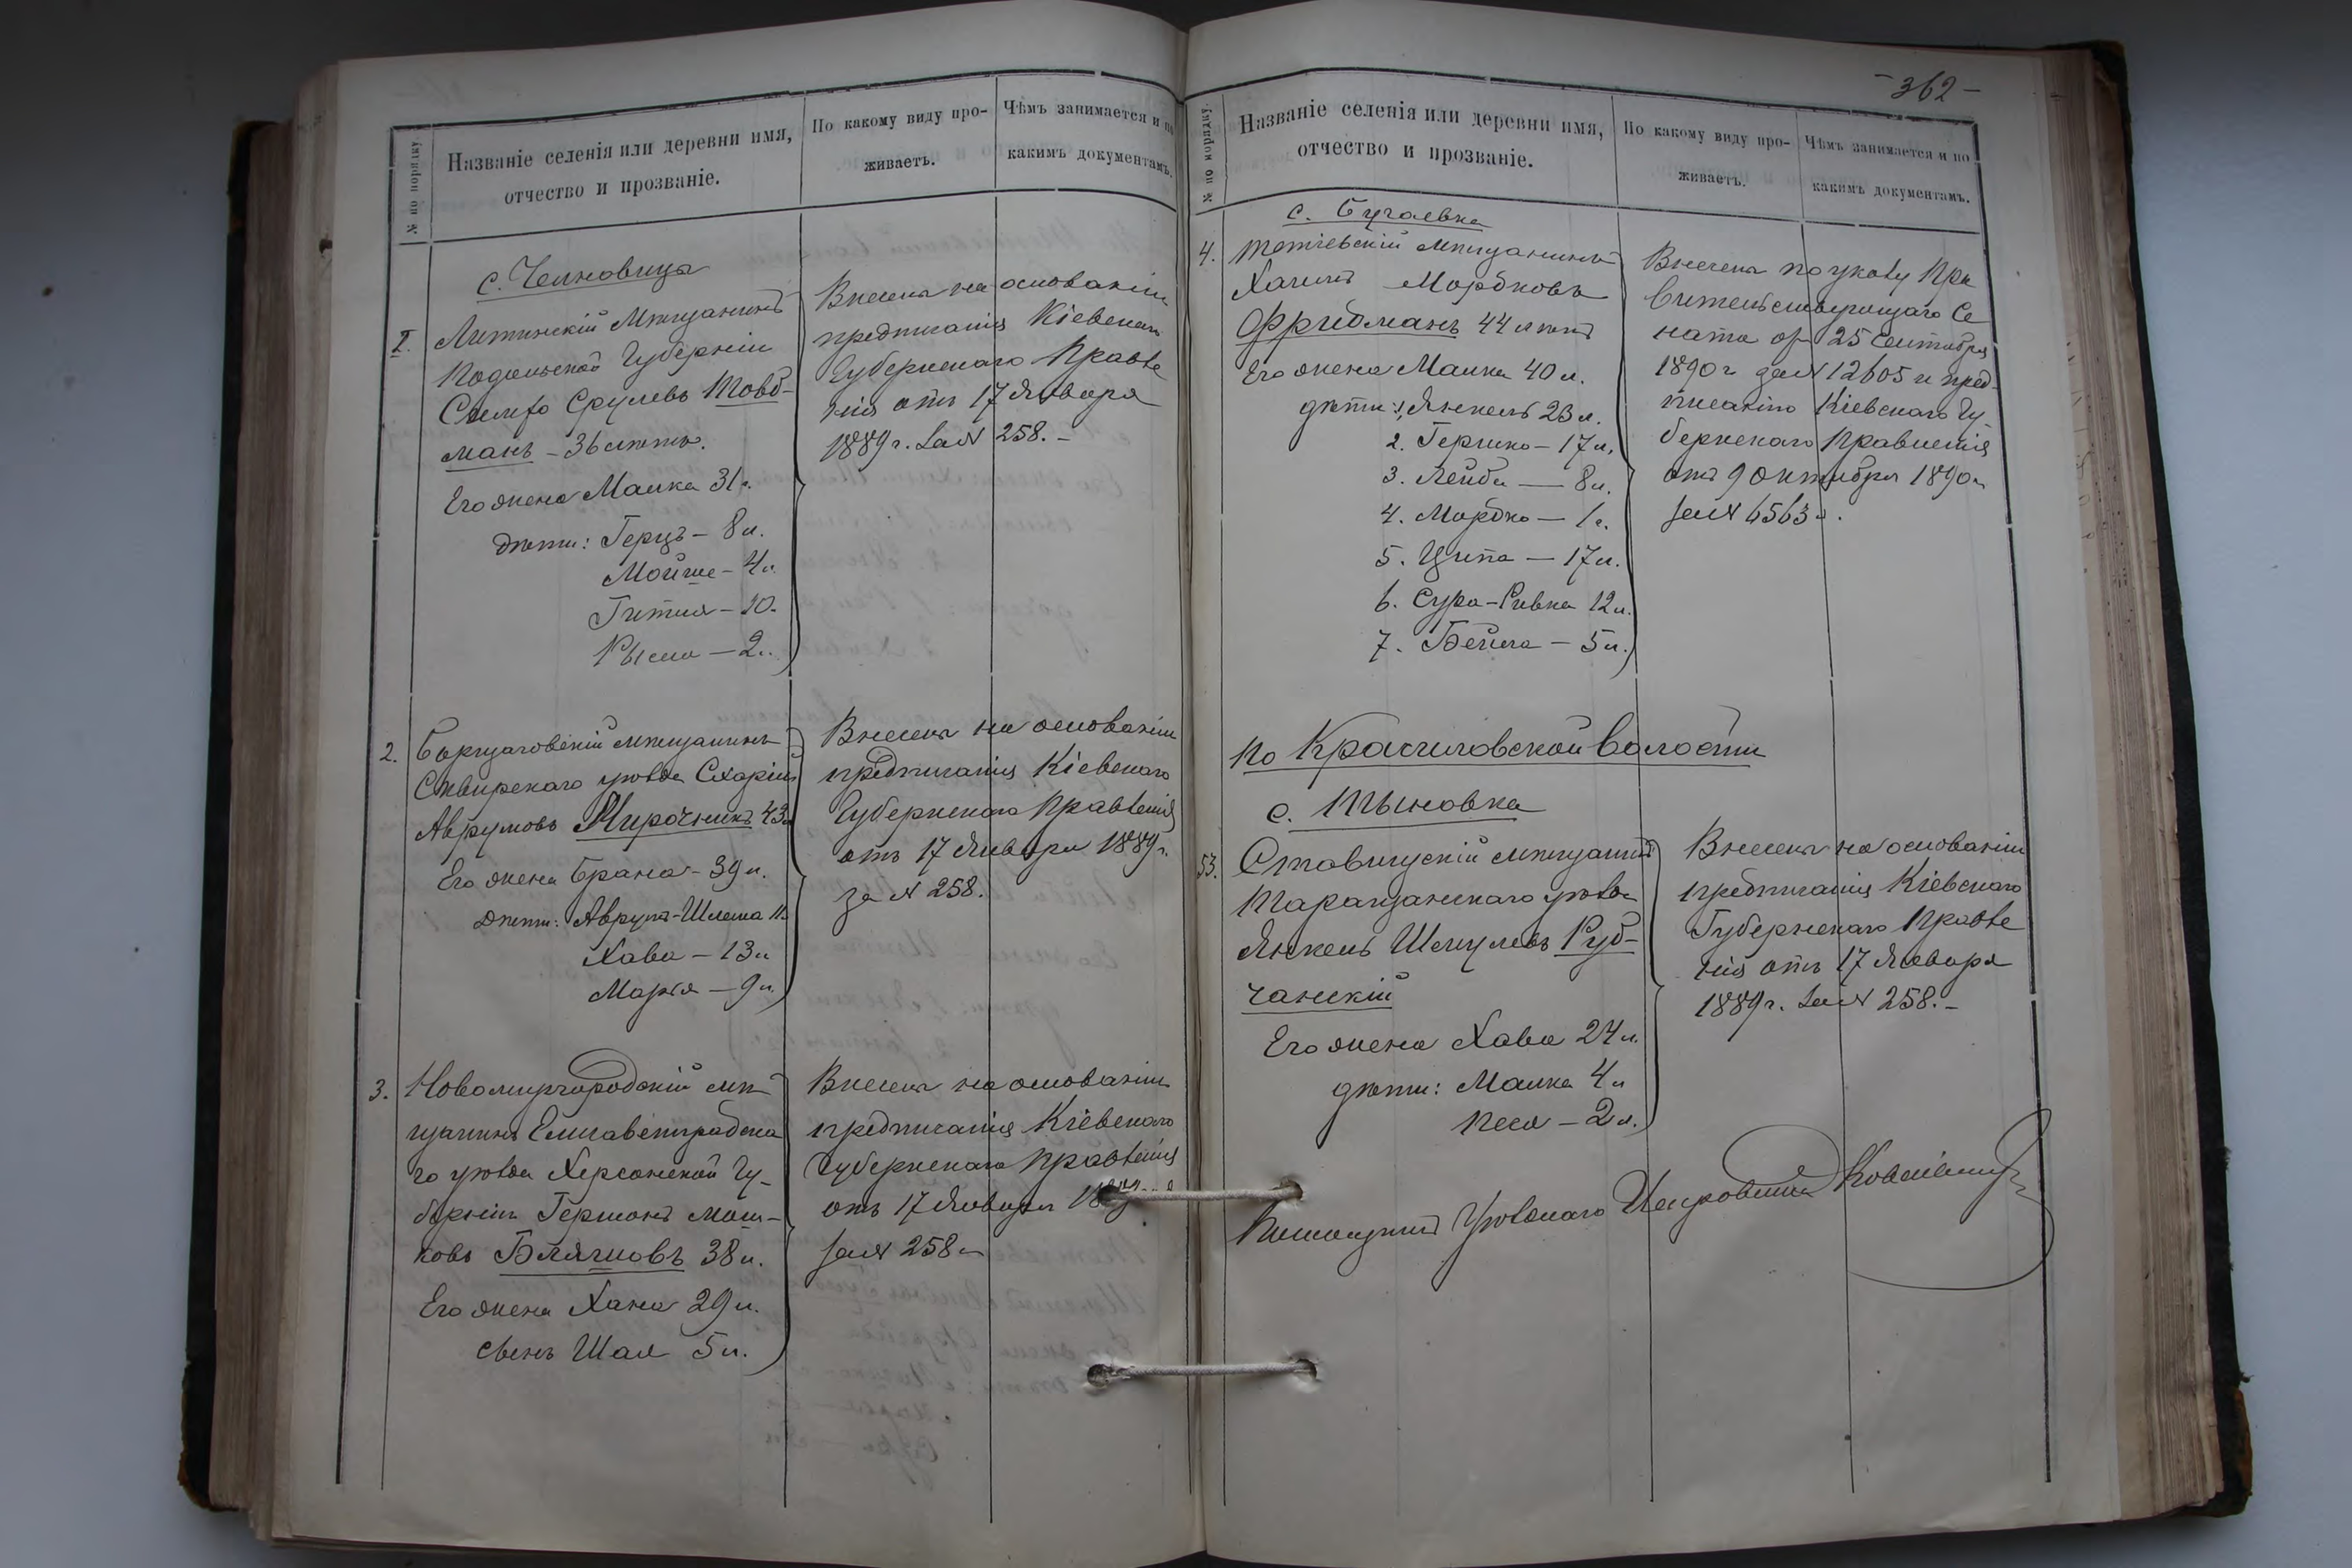 № по порядку
Названіе селенія или деревни имя,
отчество и прозваніе.
По какому виду про-
живаетъ.
Чѣмъ занимается и по
какимъ документамъ.
с. Челновица
1.
Литинскій Мѣщанинъ
Подольской Губерніи
Срулевъ Товб-
манъ - 36 лѣтъ.
Его жена Малка 31 г.
дѣти: Герцъ - 8 л.
Мойше - 4 л.
Гитля - 10.
Рыся - 2 л.
Внесенъ на основаніи
предписанія Кіевскаго
Губернскаго Правле
нія отъ 17 Января
1889 г. за № 258. -
2.
Борщаговскій мѣщанинъ
Сквирскаго уѣзда
Аврумовъ Мирочникъ 43 л
Его жена Брана - 39 л.
Дѣти: Аврумъ-Шлема 11
Хава - 13 л
Марья - 9 л.
Внесенъ на основаніи
предписанія Кіевскаго
Губернскаго Правленія
отъ 17 Января 1889 г.
за № 258.
3.
Новомиргородскій мѣ
щанинъ Елисаветградска
го уѣзда Херсонской Гу-
берніи Гершонъ Мош-
ковъ 38 л.
Его жена Хана 29 л.
сынъ Шая 5 л.
Внесенъ на основаніи
предписанія Кіевскаго
Губернскаго Правленія
отъ 17 Января
за № 258
-362-
№ по порядку.
Названіе селенія или деревни имя,
отчество и прозваніе.
По какому виду про-
живаетъ.
Чѣмъ занимается и по
какимъ документамъ.
с. Бугаевка
4.
Тетіевскій мѣщанинъ
Хаимъ Мордковъ
Фридманъ 44 лѣтъ
Его жена Малка 40 л.
дѣти: 1, Янкель 23 л.
2. Гершко - 17 л.
3. Лейба - 8 л.
4. Мордко - 1 г.
5. Ципа - 17 л.
6. Сура-Ривка 12 л.
7. Бейла - 5 л.
Внесенъ по указу Пра
вительствующаго Се
ната от 25 Сентября
1890 г за № 12605 и пред-
писанію Кіевскаго Гу-
бернскаго Правленія
отъ 9 Октября 1890 г
за № 6563.
По Красиловской волости
с. Тыновка
53.
Ставищскій мѣщанинъ
Таращанскаго уѣзда
Янкель Шмулевъ Руд-
чанскій
Его жена Хава 24 л.
дѣти: Малка 4 л
Песя - 2 л.
Внесенъ на основаніи
предписанія Кіевскаго
Губернскаго Правле
нія отъ 17 Января
1889 г. за № 258. -
Помощникъ Уѣзднаго Исправника